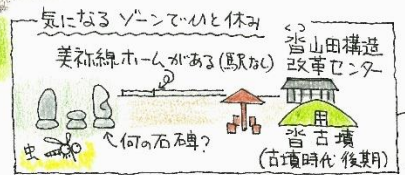 気になるゾーンでひと休み
美祢線ホームがある(駅なし)
くつ
沓山田構造
改革センター
何の石碑?
虫
沓古墳
(古墳時代後期)